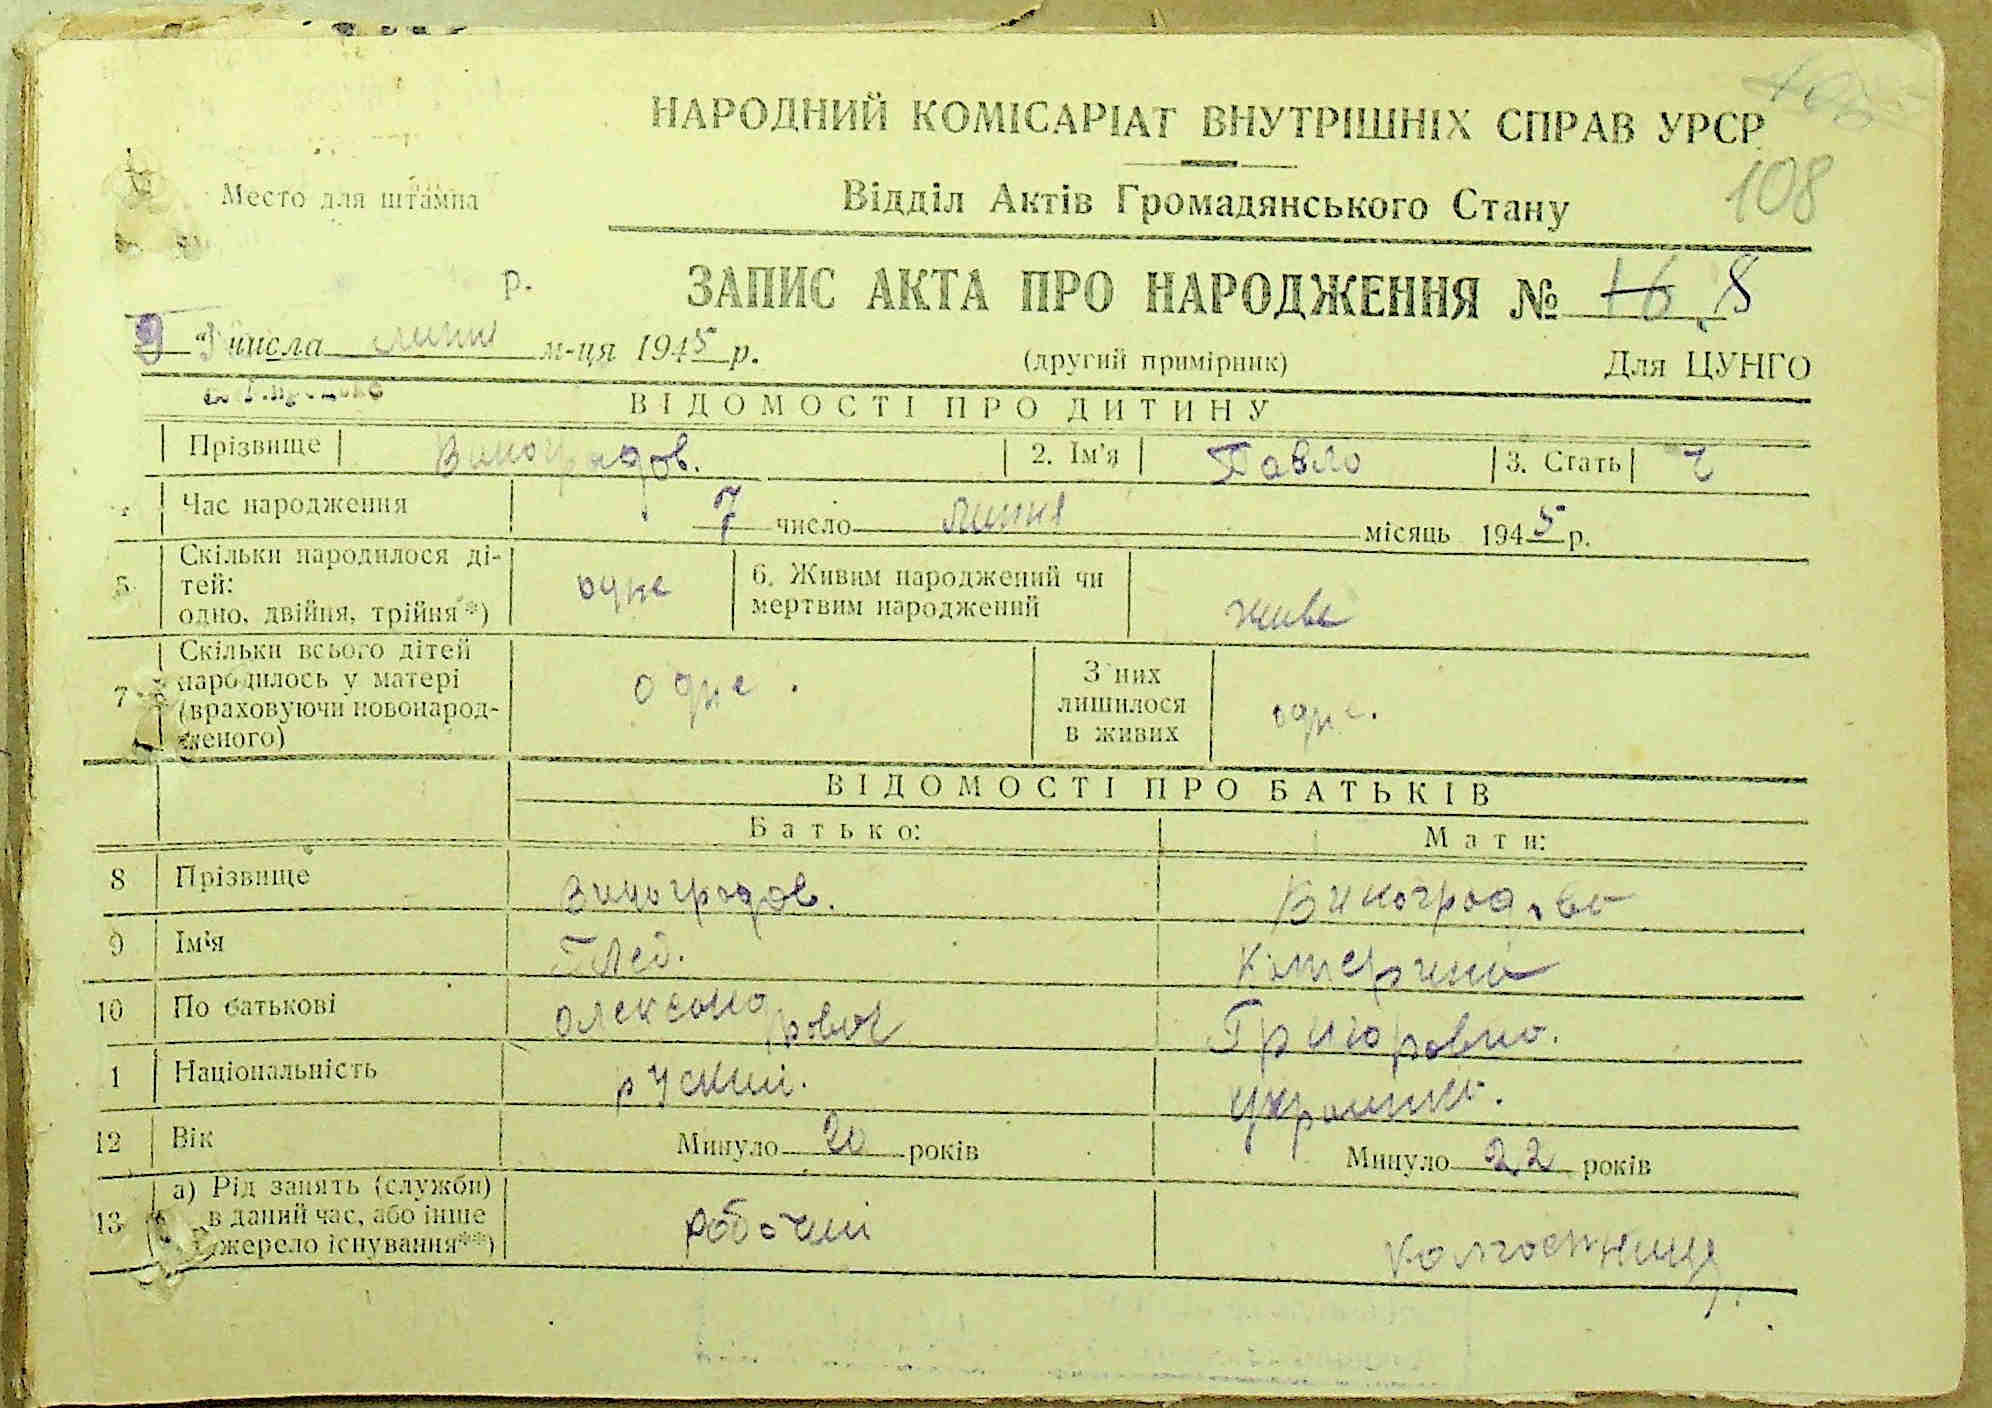 НАРОДНИЙ КОМІСАРІАТ ВНУТРІШНІХ СПРАВ УРСР
108
Место для штампа
Відділ Актів Громадянського Стану
р.
ЗАПИС АКТА ПРО НАРОДЖЕННЯ № 16 8
9 числа липня м-ця 1945 р.
(другий примірник) Для ЦУНГО
ВІДОМОСТІ ПРО ДИТИНУ
Прізвище Виноградов. 2. Ім'я Павло 3. Стать ч
Час народження 7 число липня місяць 1945 р.
5 Скільки народилося ді-
тей:
одно, двійня, трійня*) одне
6. Живим народжений чи
мертвим народжений живе
7 Скільки всього дітей
народилось у матері
(враховуючи новонарод-
женого) одне.
З них
лишилося
в живих одне.
ВІДОМОСТІ ПРО БАТЬКІВ
Батько: Мати:
8 Прізвище Виноградов. Виноградова
9 Ім'я Глеб. Катерина
10 По батькові Олександрович Григоровна.
1 Національність руский. украинка.
12 Вік Минуло 20 років Минуло 22 років
13 а) Рід занять (служби)
в даний час, або інше
жерело існування**) робочий колгоспниця.